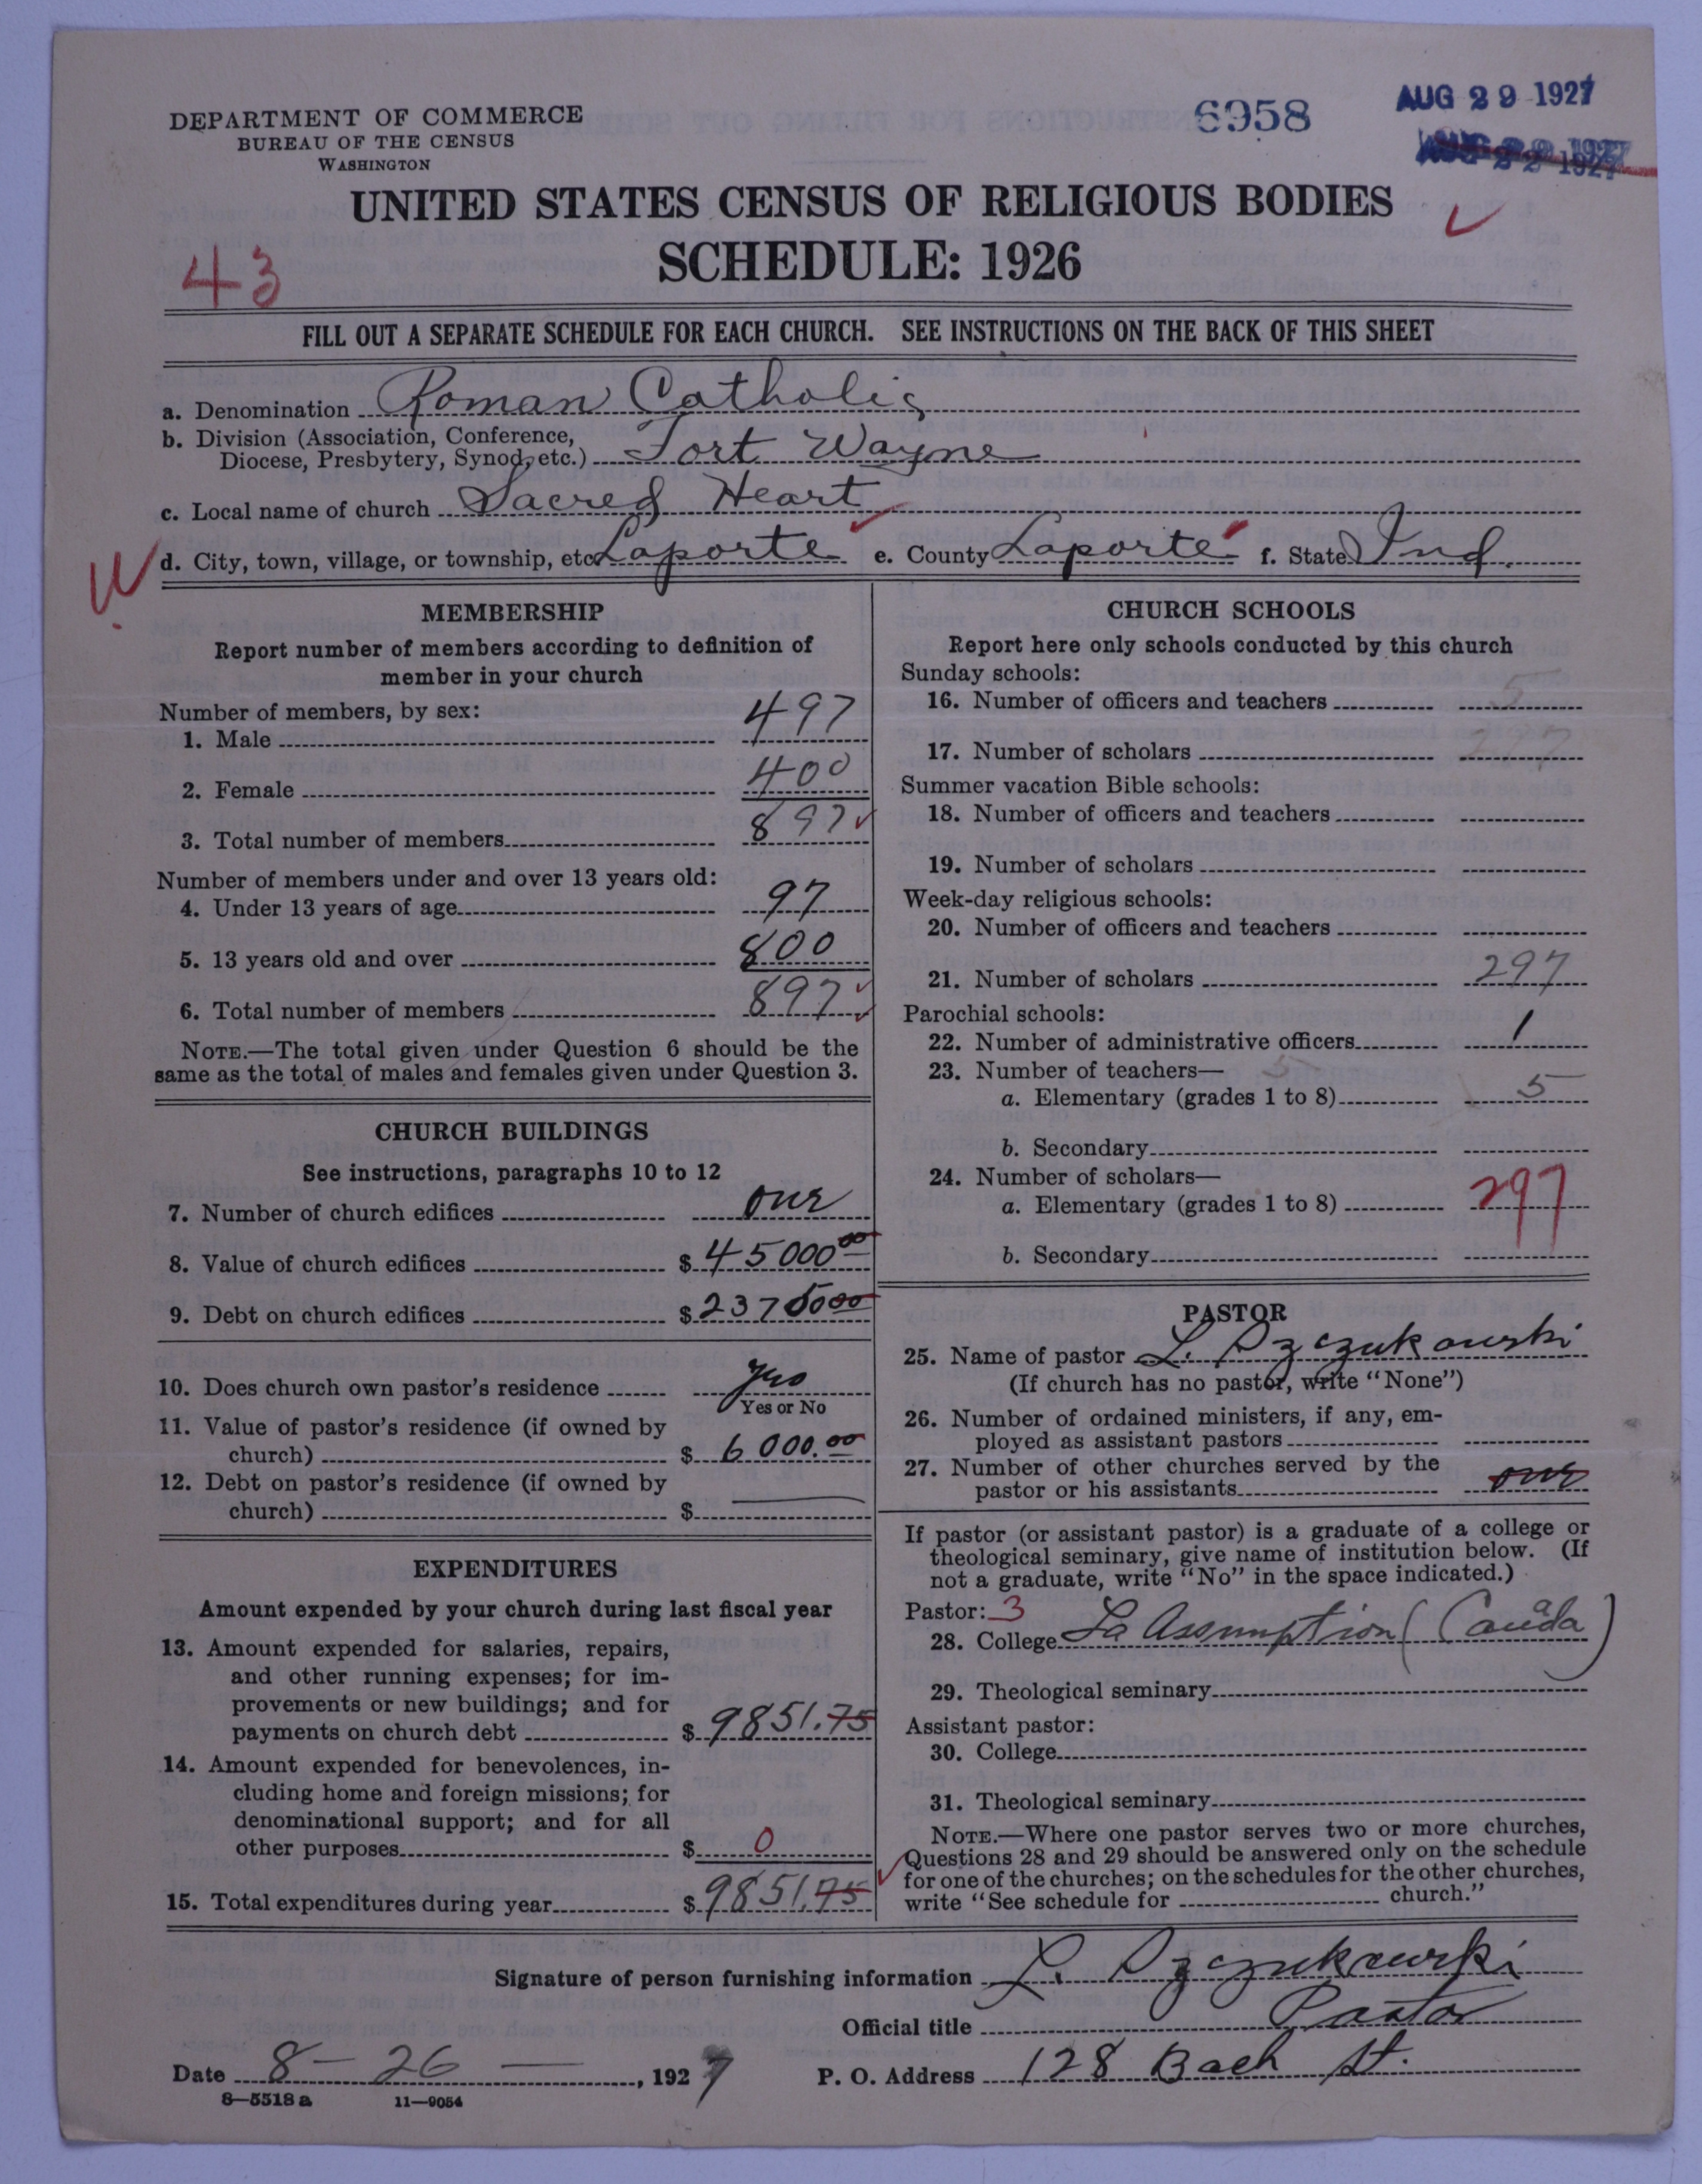 DEPARTMENT OF COMMERCE
BUREAU OF THE CENSUS
WASHINGTON
6958
AUG 29 1927
UNITED STATES CENSUS OF RELIGIOUS BODIES
SCHEDULE: 1926
43
FILL OUT A SEPARATE SCHEDULE FOR EACH CHURCH. SEE INSTRUCTIONS ON THE BACK OF THIS SHEET
a. Denomination Roman Catholic
b. Division (Association, Conference,
Diocese, Presbytery, Synod, etc.) Fort Wayne
c. Local name of church Sacred Heart
d. City, town, village, or township, etc. Laporte e. County Laporte f. State Ind.
MEMBERSHIP
Report number of members according to definition of
member in your church
Number of members, by sex:
1. Male 497
2. Female 400
3. Total number of members 897
Number of members under and over 13 years old:
4. Under 13 years of age 97
5. 13 years old and over 800
6. Total number of members 897
NOTE.—The total given under Question 6 should be the
same as the total of males and females given under Question 3.
CHURCH BUILDINGS
See instructions, paragraphs 10 to 12
7. Number of church edifices one
8. Value of church edifices $45000 00
9. Debt on church edifices $
10. Does church own pastor's residence yes
Yes or No
11. Value of pastor's residence (if owned by
church) $ 6000.00
12. Debt on pastor's residence (if owned by
church) $
EXPENDITURES
Amount expended by your church during last fiscal year
13. Amount expended for salaries, repairs,
and other running expenses; for im-
provements or new buildings; and for
payments on church debt $ 9851.75
14. Amount expended for benevolences, in-
cluding home and foreign missions; for
denominational support; and for all
other purposes $ 0
15. Total expenditures during year $ 9851.75
CHURCH SCHOOLS
Report here only schools conducted by this church
Sunday schools:
16. Number of officers and teachers 5
17. Number of scholars 297
Summer vacation Bible schools:
18. Number of officers and teachers
19. Number of scholars
Week-day religious schools:
20. Number of officers and teachers
21. Number of scholars 297
Parochial schools:
22. Number of administrative officers 1
23. Number of teachers— 5
a. Elementary (grades 1 to 8) 5
b. Secondary
24. Number of scholars—
a. Elementary (grades 1 to 8) 297
b. Secondary
PASTOR
25. Name of pastor L.
(If church has no pastor, write "None")
26. Number of ordained ministers, if any, em-
ployed as assistant pastors
27. Number of other churches served by the
pastor or his assistants one
If pastor (or assistant pastor) is a graduate of a college or
theological seminary, give name of institution below. (If
not a graduate, write "No" in the space indicated.)
Pastor: 3
28. College La Assumption (Canada)
29. Theological seminary
Assistant pastor:
30. College
31. Theological seminary
NOTE.—Where one pastor serves two or more churches,
Questions 28 and 29 should be answered only on the schedule
for one of the churches; on the schedules for the other churches,
write "See schedule for church."
Signature of person furnishing information L.
Official title Pastor
Date 8 - 26 — , 1927 P. O. Address 128 Bach St.
8—5518 a 11—9054